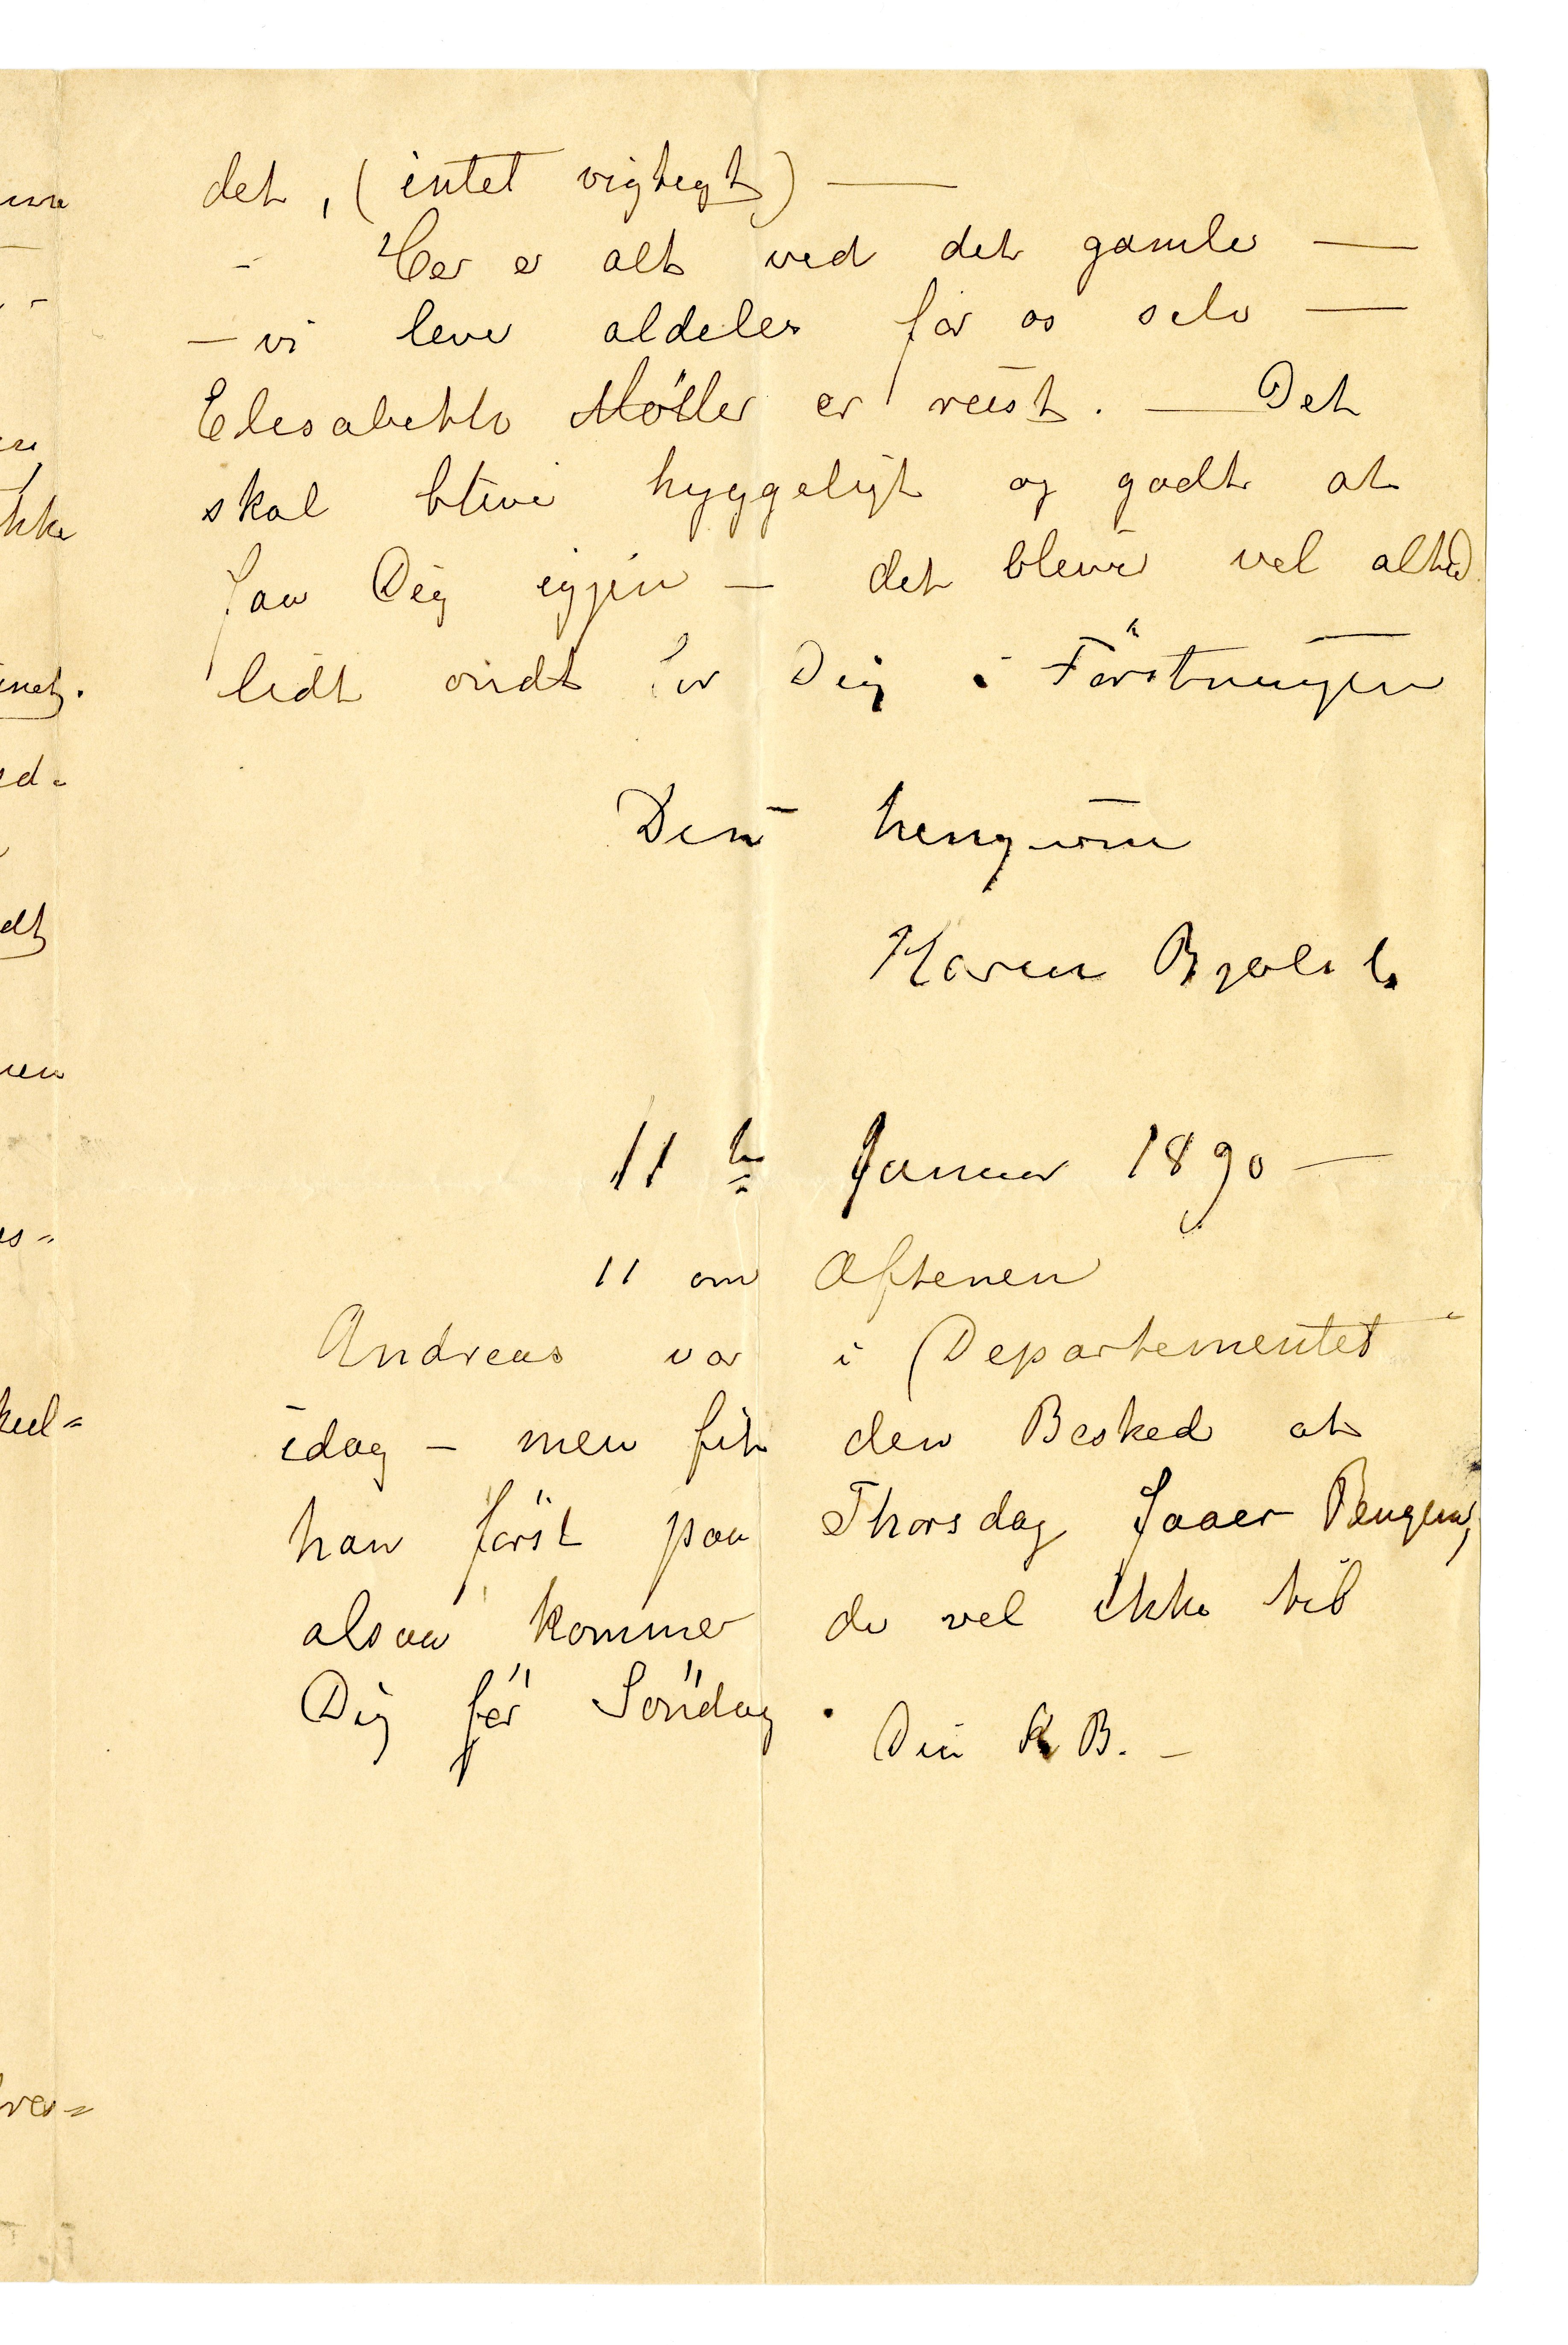 det, (intet vigtigt) —
- Her er alt ved det gamle —
— vi lever aldeles for os selv —
Elisabeth Möller er reist. — Det
skal blive hyggeligt og godt at
faa Dig igjen — det bliver vel altid
lidt ondt for Dig i Förstningen
Din hengivne
Karen Bjölst
11te Januar 1890 —
11 om Aftenen
Andreas var i Departementet
idag — men fik den Besked at
han först paa Thorsdag faaer Pengene,
alsaa kommer de vel ikke til
Dig för Söndag.
Din K B. —
ikke